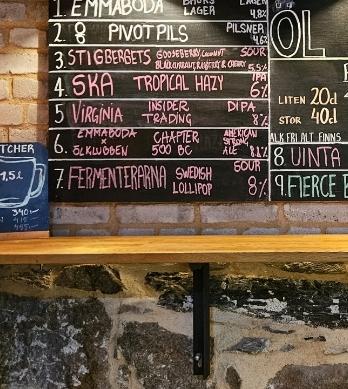 1. EMMABODA BAÜKS LAGER LAGER 4,8%
2. 8 PIVOT PILS PILSNER 4,6%
3. STIGBERGETS GOOSEBERRY, COCONUT SOUR
BLACKCURRANT, RASPBERRY & CHERRY 5,5%
4. SKA TROPICAL HAZY IPA 6%
5. VIRGINIA INSIDER TRADING DIPA 8%
6. EMMABODA X ÖLKLUBBEN CHAPTER 500 BC AMERICAN STRONG ALE 8,1%
7. FERMENTERARNA SWEDISH LOLLIPOP SOUR 8%
OL
LITEN 20cl
STOR 40cl
ALK FRI ALT FINNS
8. UINTA
9. FIERCE
TCHER
1,5L
340:-
415:-
455:-